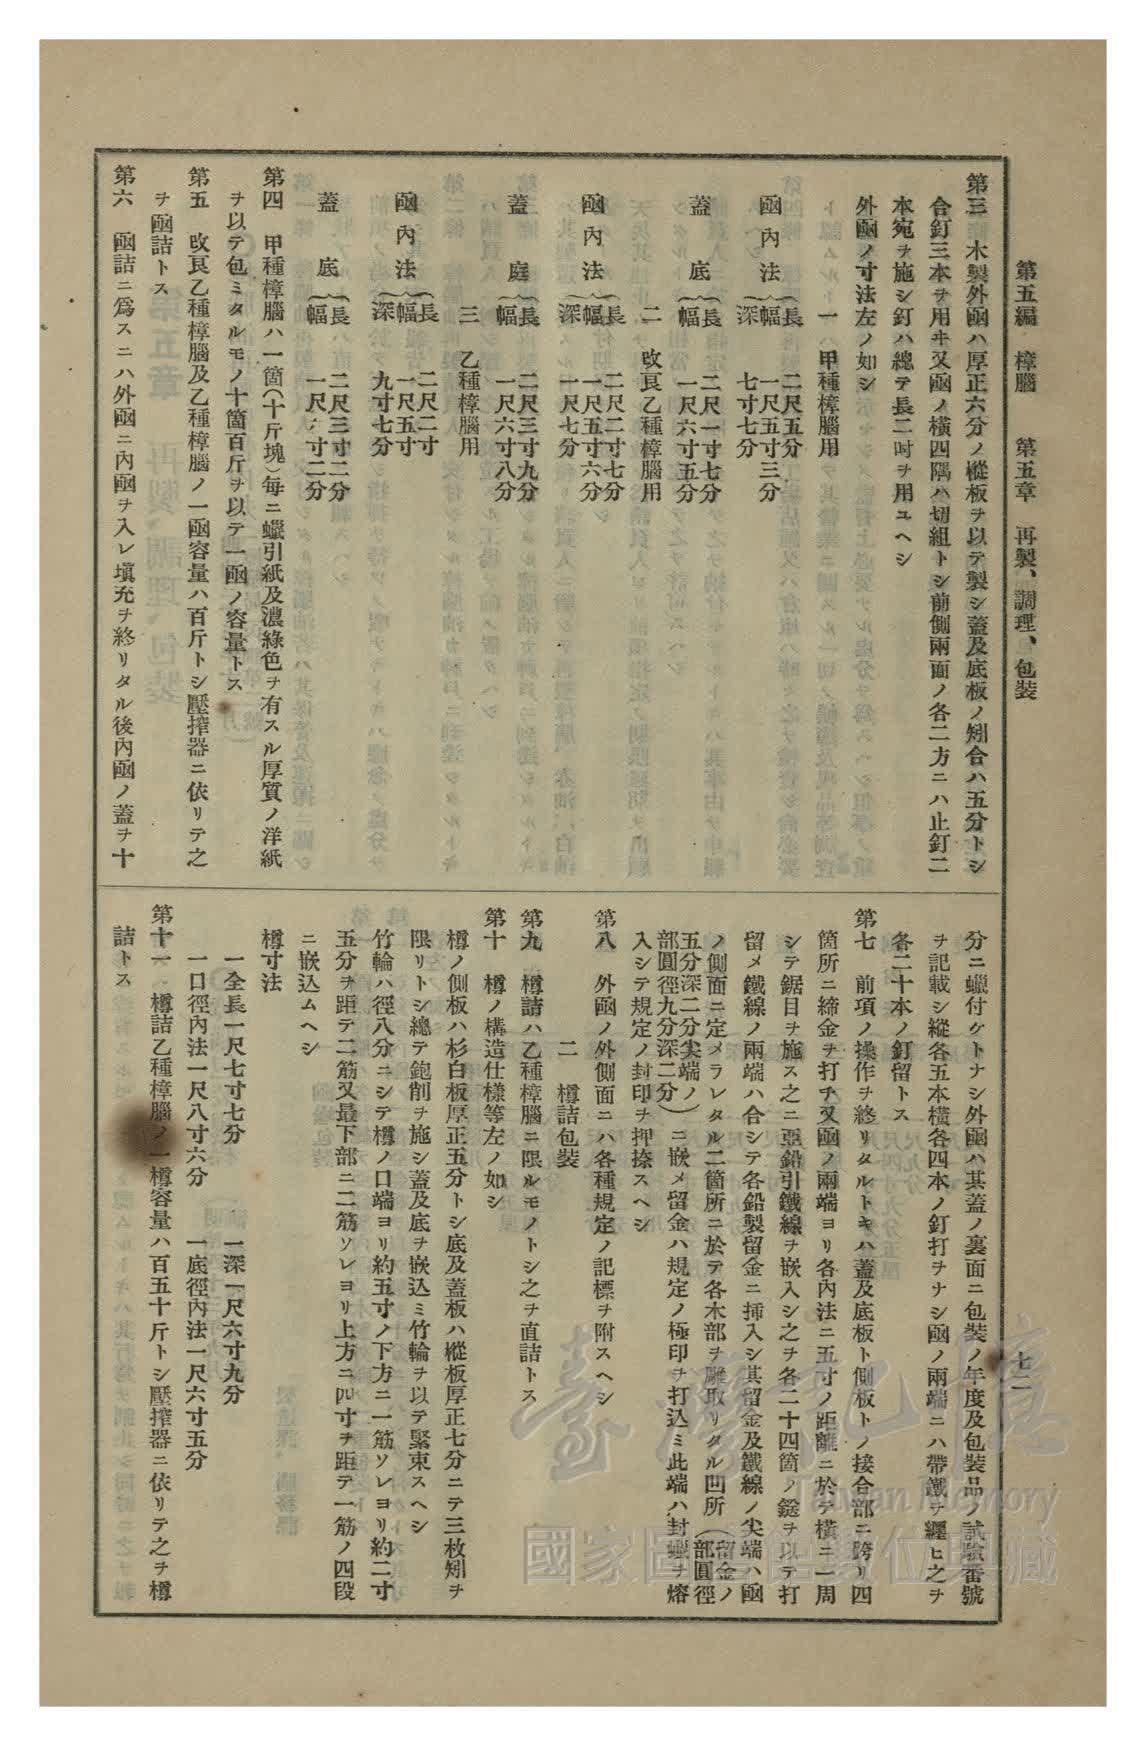 第五編　樟腦　　第五章　再製、調理、包裝
七二
第三　木製外凾ハ厚正六分ノ樅板ヲ以テ製シ蓋及底板ノ矧合ハ五分トシ
合釘三本ヲ用ヰ又凾ノ橫四隅ハ切組トシ前側兩面ノ各二方ニハ止釘二
本宛ヲ施シ釘ハ總テ長二吋ヲ用ユヘシ
外凾ノ寸法左ノ如シ
一　甲種樟腦用
凾內法｛長　二尺五分
幅　一尺五寸三分
深　七寸七分
蓋底｛長　二尺一寸七分
幅　一尺六寸五分
二　改良乙種樟腦用
凾內法｛長　二尺二寸七分
幅　一尺五寸六分
深　一尺七分
蓋庭｛長　二尺三寸九分
幅　一尺六寸八分
三　乙種樟腦用
凾內法｛長　二尺二寸
幅　一尺五寸
深　九寸七分
蓋底｛長　二尺三寸二分
幅　一尺六寸二分
第四　甲種樟腦ハ一箇(十斤塊)每ニ蠟引紙及濃綠色ヲ有スル厚質ノ洋紙
ヲ以テ包ミタルモノ十箇百斤ヲ以テ一凾ノ容量トス
第五　改良乙種樟腦及乙種樟腦ノ一凾容量ハ百斤トシ壓搾器ニ依リテ之
ヲ凾詰トス
第六　凾詰ニ爲スニハ外凾ニ內凾ヲ入レ塡充ヲ終リタル後內凾ノ蓋ヲ十
分ニ蠟付ケトナシ外凾ハ其蓋ノ裏面ニ包裝ノ年度及包裝品ノ試驗番號
ヲ記載シ縱各五本橫各四本ノ釘打ヲナシ凾ノ兩端ニハ帶鐵ヲ纒ヒ之ヲ
各二十本ノ釘留トス
第七　前項ノ操作ヲ終リタルトキハ蓋及底板ト側板トノ接合部ニ跨リ四
箇所ニ締金ヲ打チ又凾ノ兩端ヨリ各內法ニ五寸ノ距離ニ於テ橫ニ一周
シテ鋸目ヲ施ス之ニ亞鉛引鐵線ヲ嵌入シ之ヲ各二十四箇ノ鎹ヲ以テ打
留メ鐵線ノ兩端ハ合シテ各鉛製留金ニ挿入シ其留金及鐵線ノ尖端ハ凾
ノ側面ニ定メラレタル二箇所ニ於テ各木部ヲ雕取リタル凹所(留金ノ
部圓徑
五分深二分尖端ノ
部圓徑九分深二分)ニ嵌メ留金ハ規定ノ極印ヲ打込ミ此端ハ封蠟ヲ熔
入シテ規定ノ封印ヲ押捺スヘシ
第八　外凾ノ外側面ニハ各種規定ノ記標ヲ附スヘシ
二　樽詰包裝
第九　樽詰ハ乙種樟腦ニ限ルモノトシ之ヲ直詰トス
第十　樽ノ構造仕樣等左ノ如シ
樽ノ側板ハ杉白板厚正五分トシ底及蓋板ハ樅板厚正七分ニテ三枚矧ヲ
限リトシ總テ鉋削ヲ施シ蓋及底ヲ嵌込ミ竹輪ヲ以テ緊束スヘシ
竹輪ハ徑八分ニシテ樽ノ口端ヨリ約五寸ノ下方ニ一筋ソレヨリ約二寸
五分ヲ距テ二筋又最下部ニ二筋ソレヨリ上方ニ四寸ヲ距テ一筋ノ四段
ニ嵌込ムヘシ
樽寸法
一全長一尺七寸七分　　一深一尺六寸九分
一口徑內法一尺八寸六分　　一底徑內法一尺六寸五分
第十一　樽詰乙種樟腦ノ一樽容量ハ百五十斤トシ壓搾器ニ依リテ之ヲ樽
詰トス
臺灣記憶
Taiwan Memory
國家圖書館數位典藏